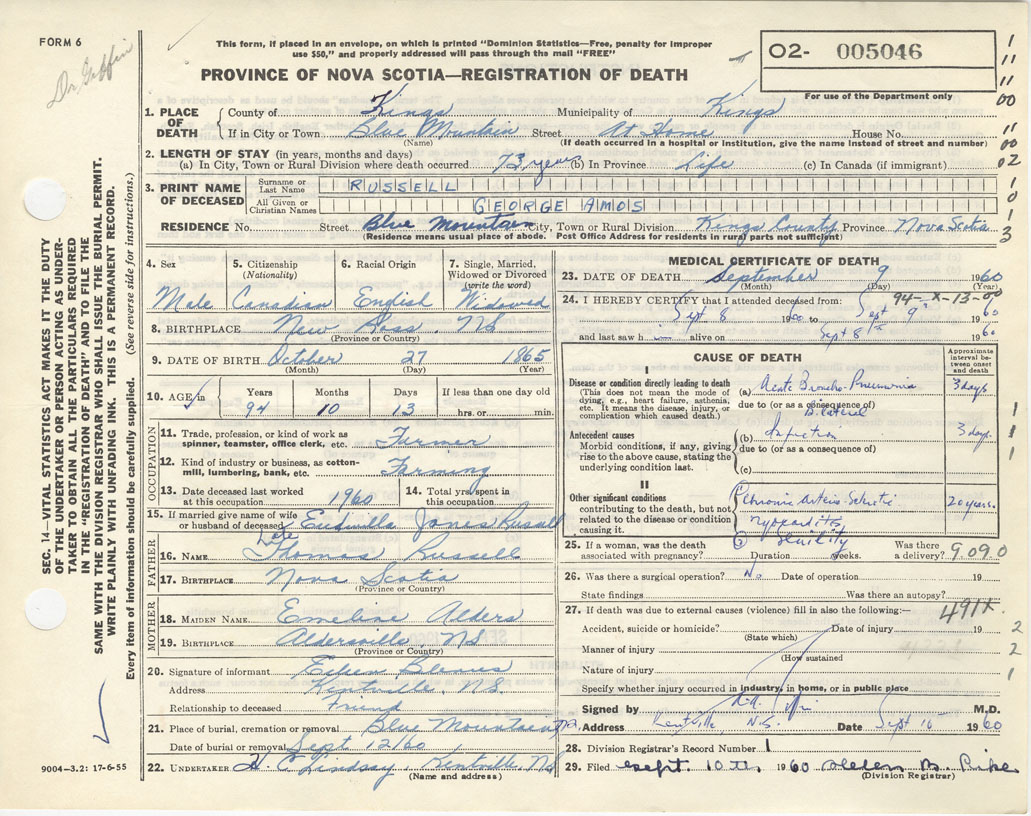 FORM 6
Dr. Giffin
This form, if placed in an envelope, on which is printed "Dominion Statistics—Free, penalty for improper
use $50," and properly addressed will pass through the mail "FREE"
O2- 005046
PROVINCE OF NOVA SCOTIA—REGISTRATION OF DEATH
For use of the Department only
1. PLACE OF DEATH
County of Kings Municipality of Kings
If in City or Town Blue Mountain Street At Home House No.
(Name) (If death occurred in a hospital or institution, give the name instead of street and number)
2. LENGTH OF STAY (in years, months and days)
(a) In City, Town or Rural Division where death occurred 73 years (b) In Province Life (c) In Canada (if immigrant)
3. PRINT NAME OF DECEASED
Surname or Last Name RUSSELL
All Given or Christian Names GEORGE AMOS
RESIDENCE No. Street Blue Mountain City, Town or Rural Division Kings County Province Nova Scotia
(Residence means usual place of abode. Post Office Address for residents in rural parts not sufficient)
4. Sex Male
5. Citizenship (Nationality) Canadian
6. Racial Origin English
7. Single, Married, Widowed or Divorced (write the word) Widowed
8. BIRTHPLACE New Ross, NS
(Province or Country)
9. DATE OF BIRTH October 27 1865
(Month) (Day) (Year)
10. AGE in Years Months Days If less than one day
94 10 13 hrs. or min.
OCCUPATION
11. Trade, profession, or kind of work as spinner, teamster, office clerk, etc. Farmer
12. Kind of industry or business, as cotton-mill, lumbering, bank, etc. Farming
13. Date deceased last worked at this occupation 1960
14. Total yrs. spent in this occupation
15. If married give name of wife or husband of deceased Jones Russell
FATHER
Late
16. NAME Thomas Russell
17. BIRTHPLACE Nova Scotia
(Province or Country)
MOTHER
18. MAIDEN NAME Emeline Alders
19. BIRTHPLACE Aldersville, NS
(Province or Country)
20. Signature of informant
Address Kentville, N.S.
Relationship to deceased Friend
21. Place of burial, cremation or removal Blue Mountain
Date of burial or removal Sept 12/60
22. UNDERTAKER H. C. Lindsay, Kentville, NS
(Name and address)
9004—3.2: 17-6-55
MEDICAL CERTIFICATE OF DEATH
23. DATE OF DEATH September 9 1960
(Month) (Day) (Year)
94-X-13-00
24. I HEREBY CERTIFY that I attended deceased from:
Sept 8 1960 to Sept 9 1960
and last saw h im alive on Sept 8th 1960
CAUSE OF DEATH
Approximate interval between onset and death
I
Disease or condition directly leading to death
(This does not mean the mode of dying, e.g., heart failure, asthenia, etc. It means the disease, injury, or complication which caused death.)
(a) Acute Broncho-Pneumonia 3 days
due to (or as a consequence of)
Bilateral
Antecedent causes
Morbid conditions, if any, giving rise to the above cause, stating the underlying condition last.
(b) Infection 3 days.
due to (or as a consequence of)
(c)
II
Other significant conditions
contributing to the death, but not related to the disease or condition causing it.
(1) Chronic Arterio-Sclerotic 20 years.
myocarditis
(2) Senility
25. If a woman, was the death associated with pregnancy? Duration weeks. Was there a delivery? 9090
26. Was there a surgical operation? No Date of operation 19
State findings Was there an autopsy?
27. If death was due to external causes (violence) fill in also the following:— 491X
Accident, suicide or homicide? Date of injury 19
(State which)
Manner of injury
(How sustained
Nature of injury
Specify whether injury occurred in industry, in home, or in public place
Signed by M.D.
Address Kentville, N.S. Date Sept 10 1960
28. Division Registrar's Record Number 1
29. Filed Sept 10th, 1960 Helen M. Pike
(Division Registrar)
SEC. 14—VITAL STATISTICS ACT MAKES IT THE DUTY
OF THE UNDERTAKER OR PERSON ACTING AS UNDER-
TAKER TO OBTAIN ALL THE PARTICULARS REQUIRED
IN THE "REGISTRATION OF DEATH" AND TO FILE THE
SAME WITH THE DIVISION REGISTRAR WHO SHALL ISSUE THE BURIAL PERMIT.
WRITE PLAINLY WITH UNFADING INK. THIS IS A PERMANENT RECORD.
Every item of information should be carefully supplied. (See reverse side for instructions.)